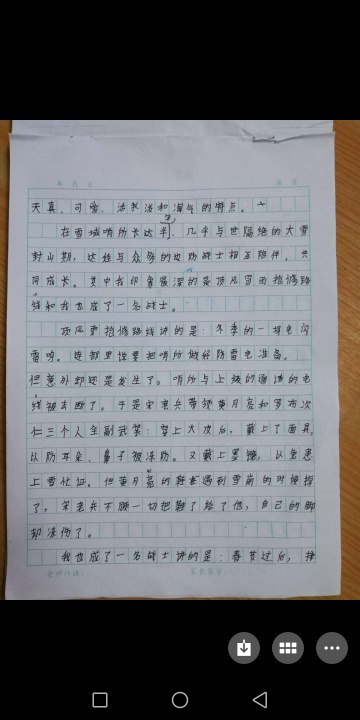 年 月 日
天真、可爱、活泼淡和淘气的特点。
在雪域哨所长达半年、几乎与世隔绝的大雪
封山期,达娃与众多的边防战士相互陪伴,共
同成长。其中我印象最深的是顶风冒雨抢修路
线和我也成了一名战士。
顶风冒抢修路线讲的是:冬季的一场电闪
雷鸣。连部里说要把哨所做好防雷电准备。
但意外却还是发生了。哨所与上级的通讯的电
线被击断了。于是宋老兵带领黄月亮和罗布次
仁三个人全副武装:穿上大衣后,戴上了面具,
以防耳朵、鼻子被冻伤。又戴上墨镜,以免患
上雪盲症。但黄月亮的鞋在遇到雪崩的时候掉
了,宋老兵不顾一切把鞋子给了他,自己的脚
却冻伤了。
我也成了一名战士讲的是:春节过后,